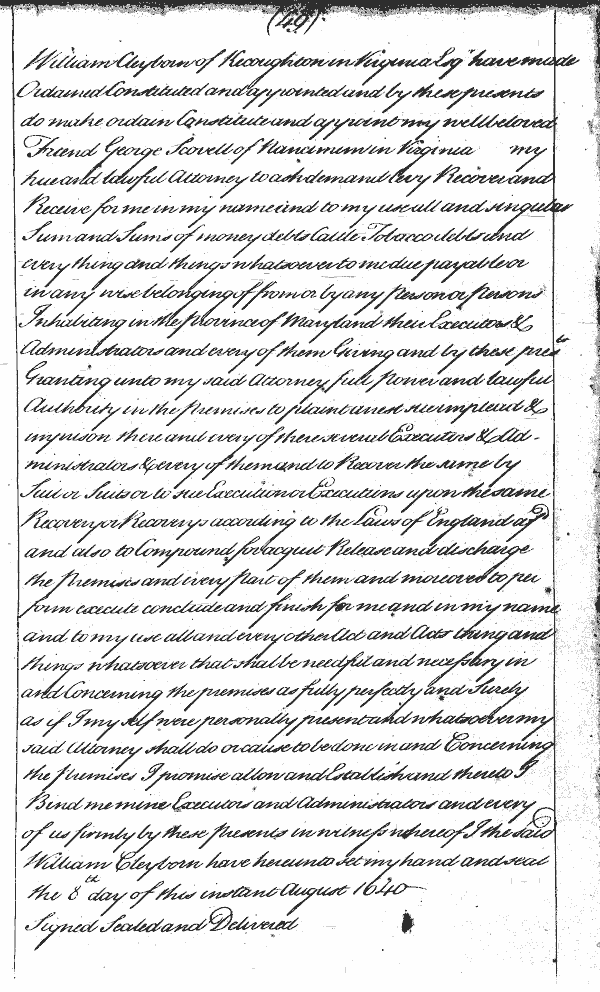 (49)
William Cleyborn of Kecoughton in Virginia Esqr have made
Ordained Constituted and appointed and by these presents
do make ordain Constitute and appoint my wellbeloved
Friend George Scovell of Nanamum in Virginia my
true and lawful Attorney to ask demand levy Recover and
Receive for me in my name and to my use all and singular
Sum and Sums of money debts Cattle Tobacco debts and
every thing and things whatsoever to me due payable or
in any wise belonging of from or by any Person or Persons
Inhabiting in the Province of Maryland their Executors &
Administrators and every of them Giving and by these prests
Granting unto my said Attorney full Power and lawful
Authority in the Premises to plaint arrest sue implead &
imprison there and every of there several Executors & Ad-
ministrators & every of them and to Recover the same by
Suit or Suits or to sue Execution or Executions upon the same
Recovery or Recoverys according to the Laws of England
and also to Compound for acquit Release and discharge
the Premises and every Part of them and moreover to per
form execute conclude and finish for me and in my name
and to my use all and every other Act and Acts thing and
things whatsoever that shall be needful and necessary in
and Concerning the premises as fully perfectly and Surely
as if I my self were personally present and whatsoever my
said Attorney shall do or cause to be done in and Concerning
the Premises I promise allow and Establish and thereto I
Bind me mine Executors and Administrators and every
of us firmly by these Presents in witness whereof I the said
William Cleyborn have hereunto set my hand and seal
the 8th day of this instant August 1640
Signed Sealed and Delivered